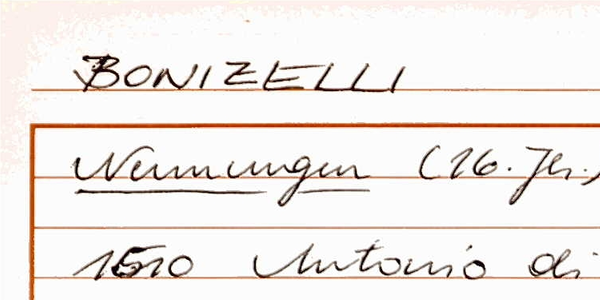 BONIZELLI
Nennungen (16. Jh.)
1510 Antonio di